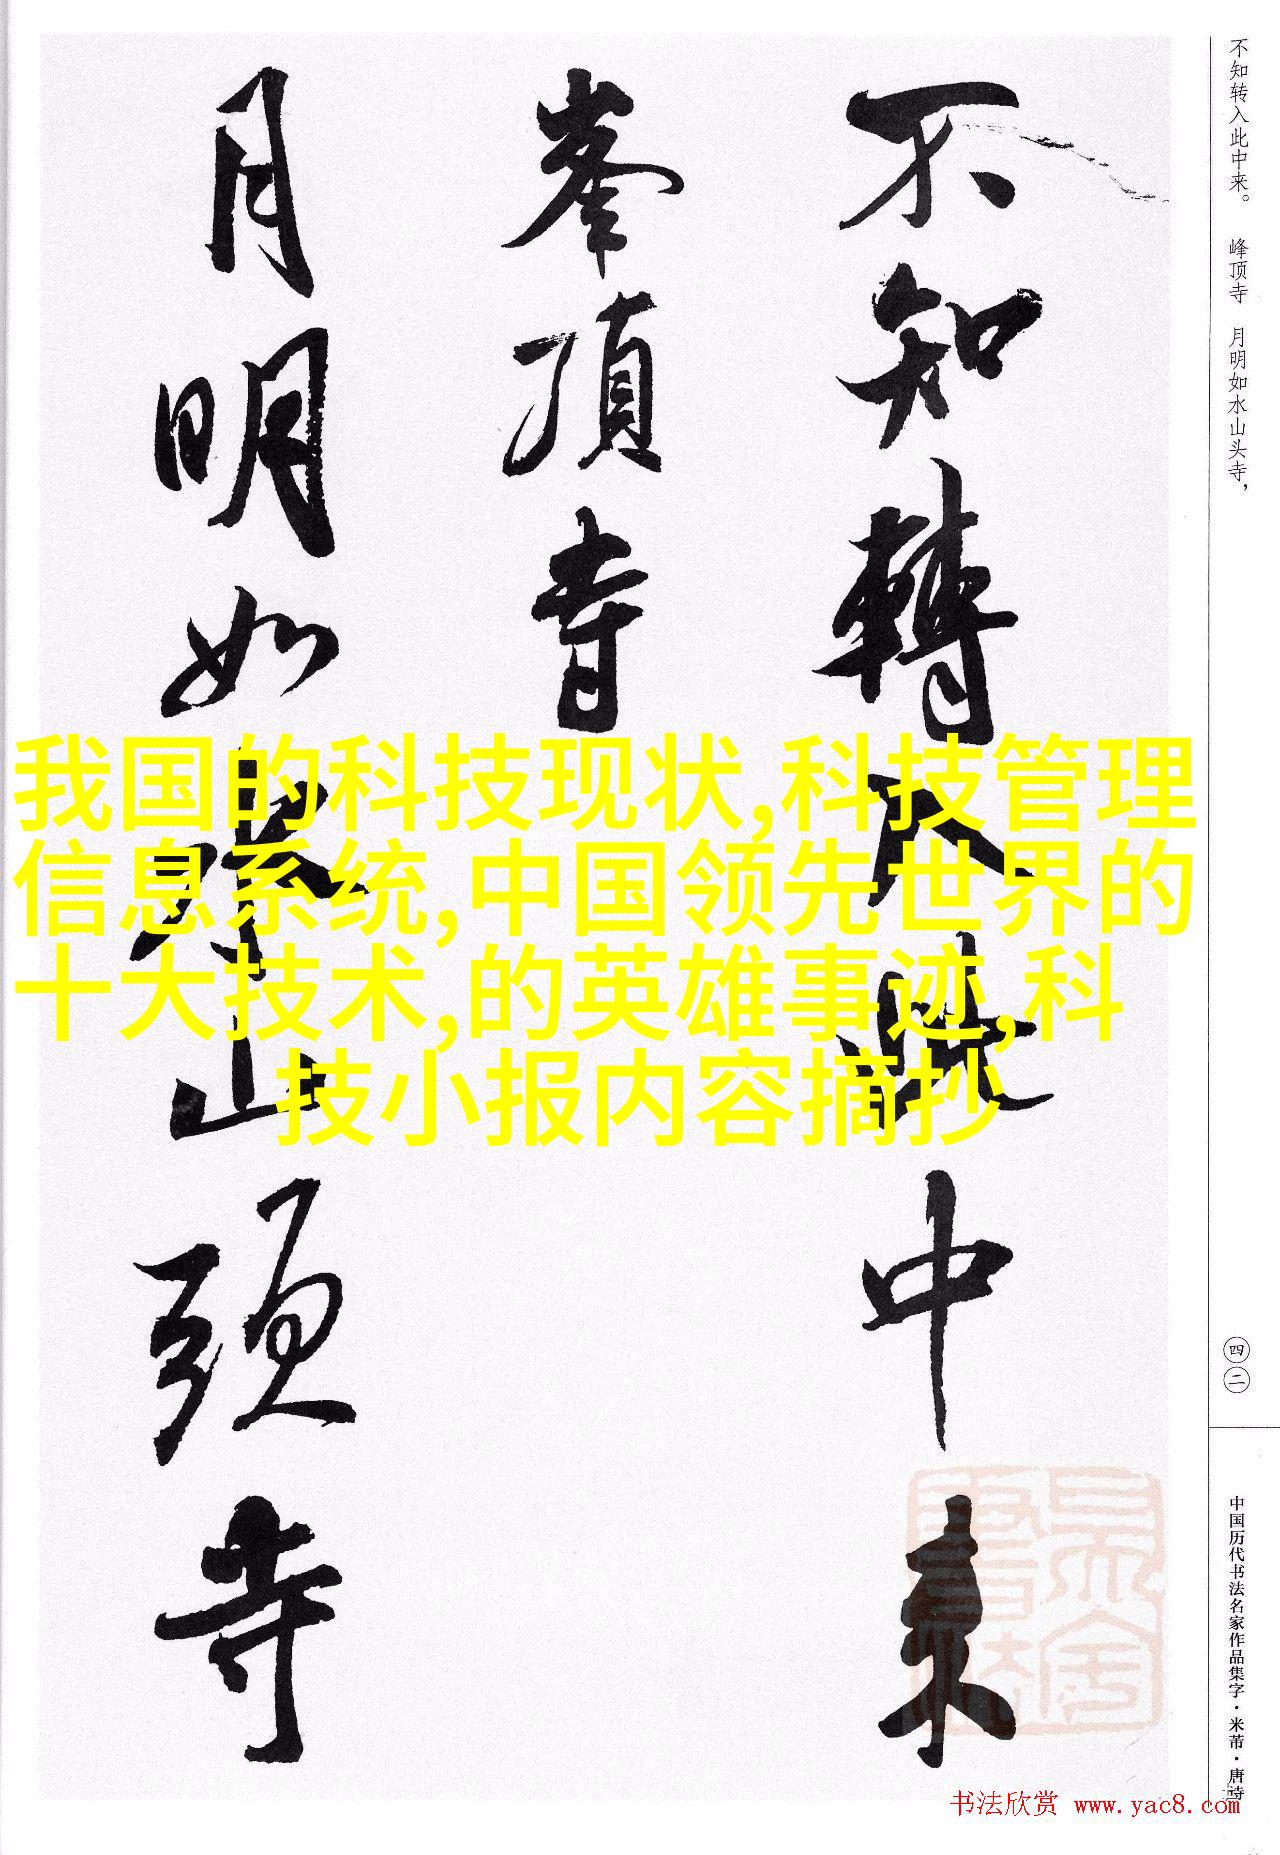 不知转入此中来。 峰顶寺 月明如水山头寺，
不知轉入此中来
峯頂寺
月明如水山頭寺
我国的科技现状,科技管理
信息系统,中国领先世界的
十大技术,的英雄事迹,科
技小报内容摘抄
四二
中国历代书法名家作品集字·米芾·唐诗
书法欣赏 www.yac8.com